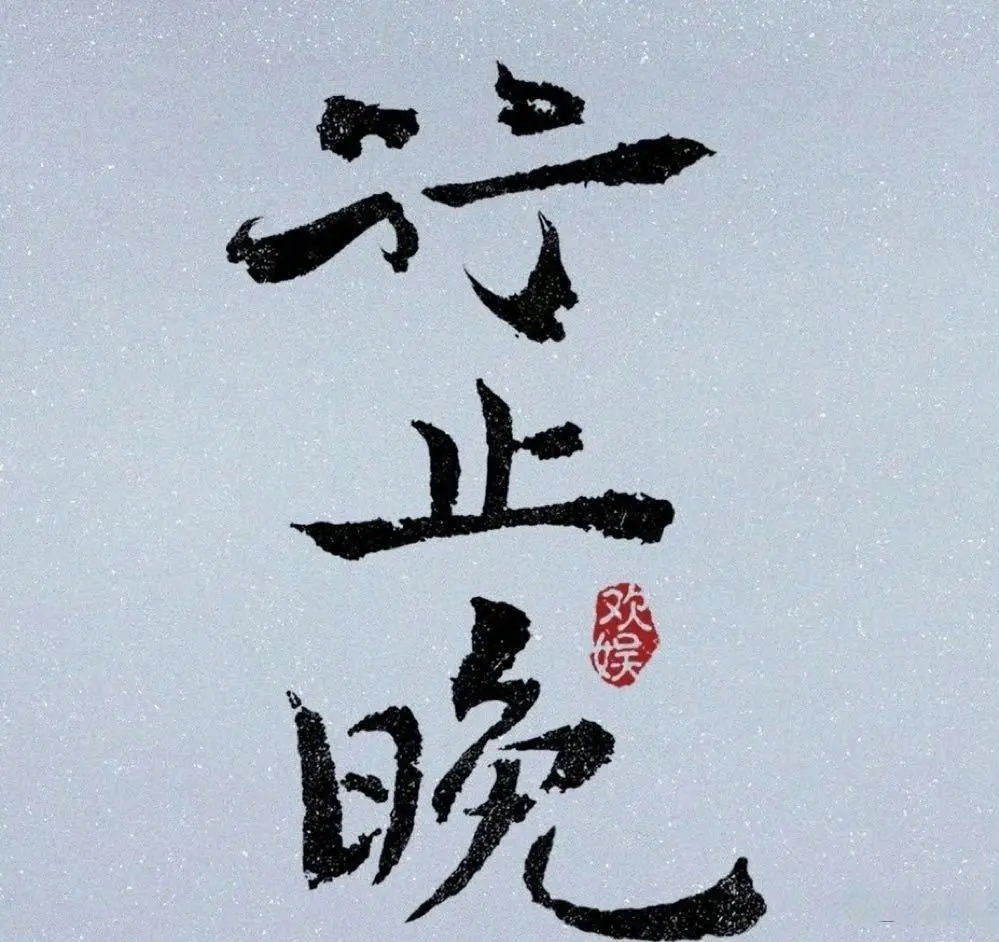 行
止
晚
欢
娱